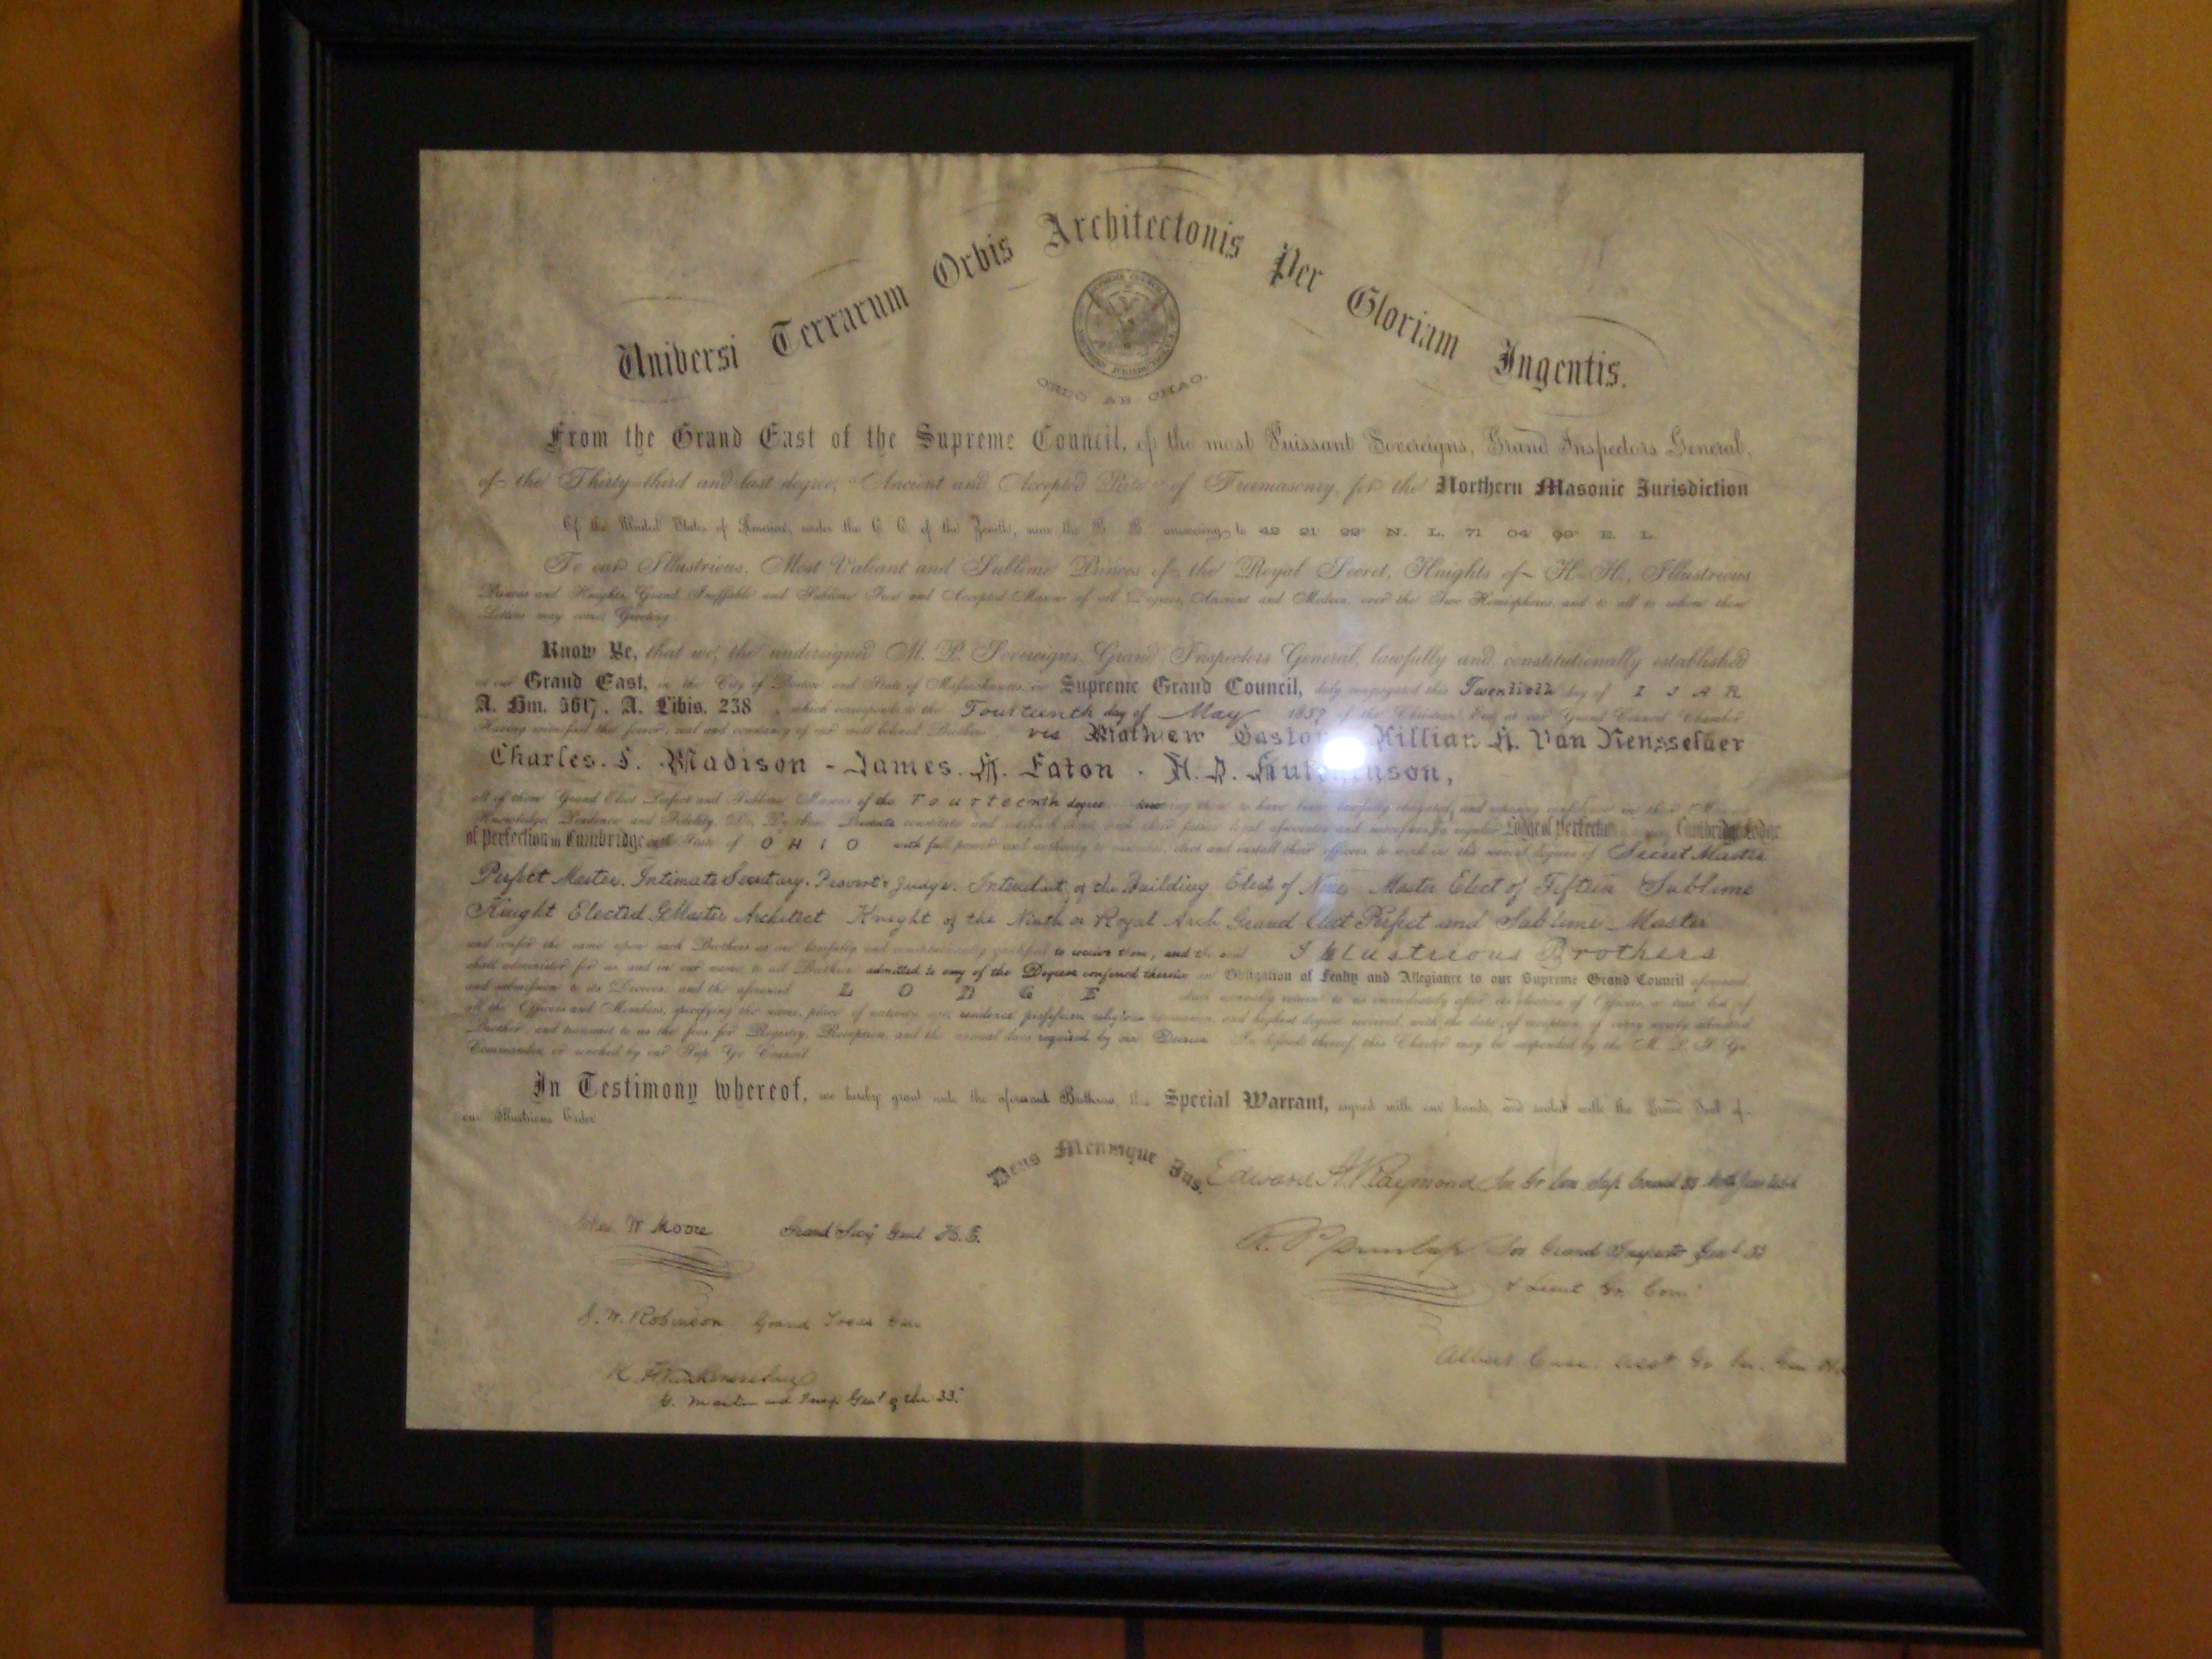 Universi Terrarum Orbis Architectonis Per Gloriam Ingentis.
ORDO AB CHAO.
From the Grand East of the Supreme Council, of the most Puissant Sovereigns, Grand Inspectors General,
of the Thirty-third and last degree, "Ancient and Accepted Rite" of Freemasonry, for the Northern Masonic Jurisdiction
Of the United States of America, under the C. C. of the Zenith, near the B. B. answering to 42 21 22 N. L. 71 04 09 E. L.
To our Illustrious, Most Valiant and Sublime Princes of the Royal Secret, Knights of K. H., Illustrious
Princes and Knights, Grand, Ineffable and Sublime Free and Accepted Masons of all Degrees, Ancient and Modern, over the Two Hemispheres, and to all to whom these
Letters may come, Greeting
Know Ye, that we, the undersigned M. P. Sovereigns, Grand Inspectors General, lawfully and constitutionally established
at our Grand East, in the City of Boston and State of Massachusetts, in Supreme Grand Council, duly congregated this Twentieth day of I J A R
A. Hm. 5617. A. Libis. 238, which corresponds to the Fourteenth day of May 1857 of the Christian Era, at our Grand Council Chamber
Having witnessed the fervor, zeal and constancy of our well beloved Brethren viz Mathew Gaston Killian H. Van Rensselaer
Charles. S. Madison - James. H. Eaton -
all of them Grand Elect Perfect and Sublime Masons of the Fourteenth degree knowing them to have been lawfully obligated, and reposing confidence in their
Knowledge, Prudence and Fidelity, Do, By these Presents constitute and their future legal Lodge of Perfection Cambridge Lodge
of Perfection in Cambridge State of O H I O with full power and authority to elect and install their officers, to work in the several degrees of Secret Master
Perfect Master. Intimate Secretary. Provost & Judge. Intendent of the Building Elect of Nine Master Elect of Fifteen Sublime
Knight Elected. G. Master Architect Knight of the Ninth or Royal Arch Grand Elect Perfect and Sublime Master
and confer the same upon such Brothers as are lawfully and constitutionally qualified to receive them, and the said Illustrious Brothers
shall administer for us and in our name to all Brothers admitted to any of the Degrees conferred therein an Obligation of Fealty and Allegiance to our Supreme Grand Council aforesaid,
and submission to its Decrees, and the aforesaid L O D G E shall annually return to us immediately after its election of Officers, a true list of
all the Officers and Members, specifying the name, place of nativity, age, residence, profession, religion and highest degree received, with the date of reception of every newly admitted
Brother, and transmit to us the fees for Registry, Reception, and the annual dues required by our Decrees In default thereof, this Charter may be suspended by the
Commander, or revoked by our Sup Gr. Council
In Testimony whereof, we hereby grant unto the aforesaid Brethren, this Special Warrant, signed with our hands, and sealed with the Grand Seal of
our Illustrious Order
Deus Meumque Jus.
Edward A. Raymond Sov Gr Com Sup Council 33
W Moore Grand Secy Genl H. E.
Sov Grand Inspect Genl 33
& Lieut Gr. Com
Robinson Grand Treas Gen
Albert Case.
Insp Genl of the 33.